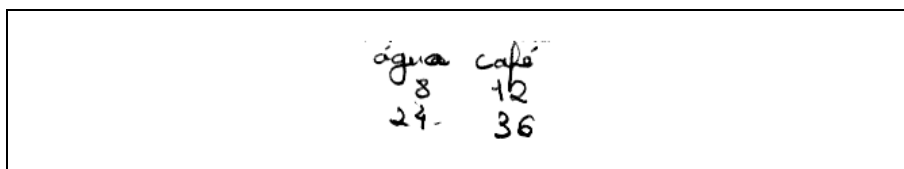 água café
8 12
24 36